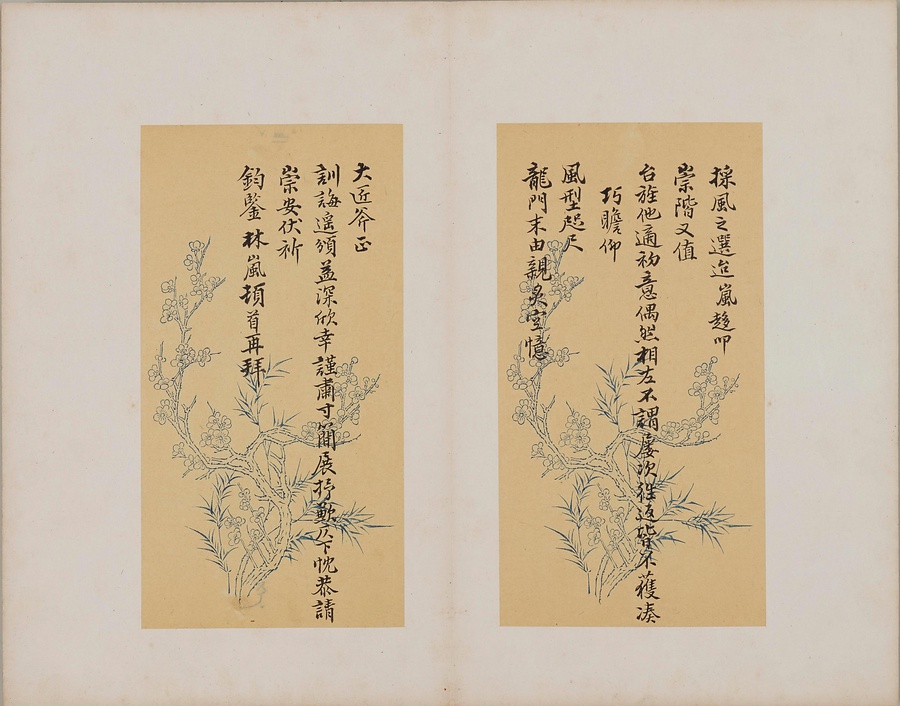 採風之選迨嵐趍叩
崇階又值
台旌他適初意偶然相左不謂屢次往返皆不獲湊
巧瞻仰
風型起尺
龍門末由親炙空憶
大匠斧正
訓誨遥頒益深欣幸謹肅寸簡展抒歉仄下忱恭請
崇安伏祈
鈞鑒林嵐頓首再拜